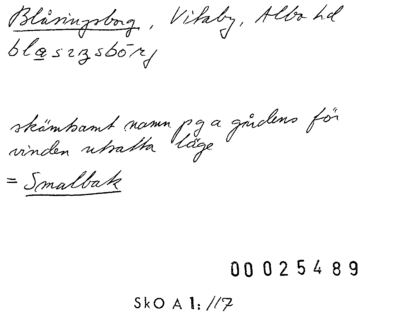 Blåsingsborg, Vitaby, Albo hd
skämtsamt namn pg a gårdens för
vinden utsatta läge
= Smalbak
00 025489
SkO A 1:117